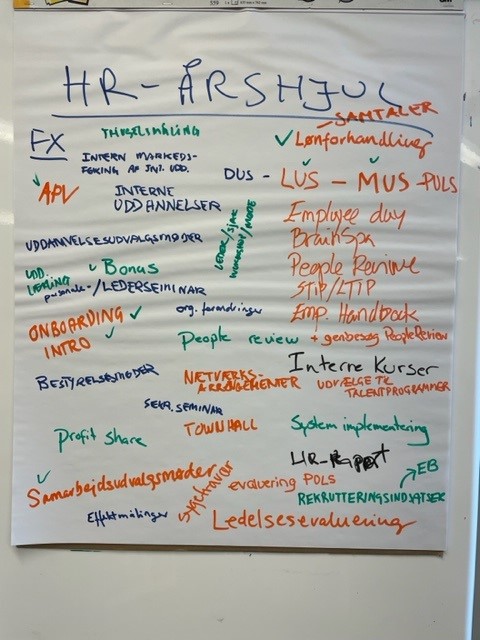 HR-ÅRSHJUL
FX
TRIVSELSMÅLING
INTERN MARKEDS-
FØRING AF INT. UDD.
✓ APV
INTERNE
UDDANNELSER
UDDANNELSESUDVALGSMØDER
UDD.
✓ Bonus
personale-/LEDERSEMINAR
ONBOARDING ✓
INTRO ✓
BESTYRELSESMØDER
SEKR. SEMINAR
Profit share
✓
Samarbejdsudvalgsmøder
Effektmålinger
SAMTALER
✓ Lønforhandlinger
DUS - LUS - MUS - PULS
Employee day
BrainSpa
People Review
STIP/LTIP
Emp. Handbook
org. forandringer
People review + genbesøg PeopleReview
NETVÆRKS-
ARRANGEMENTER
TOWNHALL
Interne Kurser
UDVÆLGE TIL
TALENTPROGRAMMER
System implementering
HR-Rapport
EB
evaluering POLS
REKRUTTERINGSINDSATSER
Ledelsesevaluering